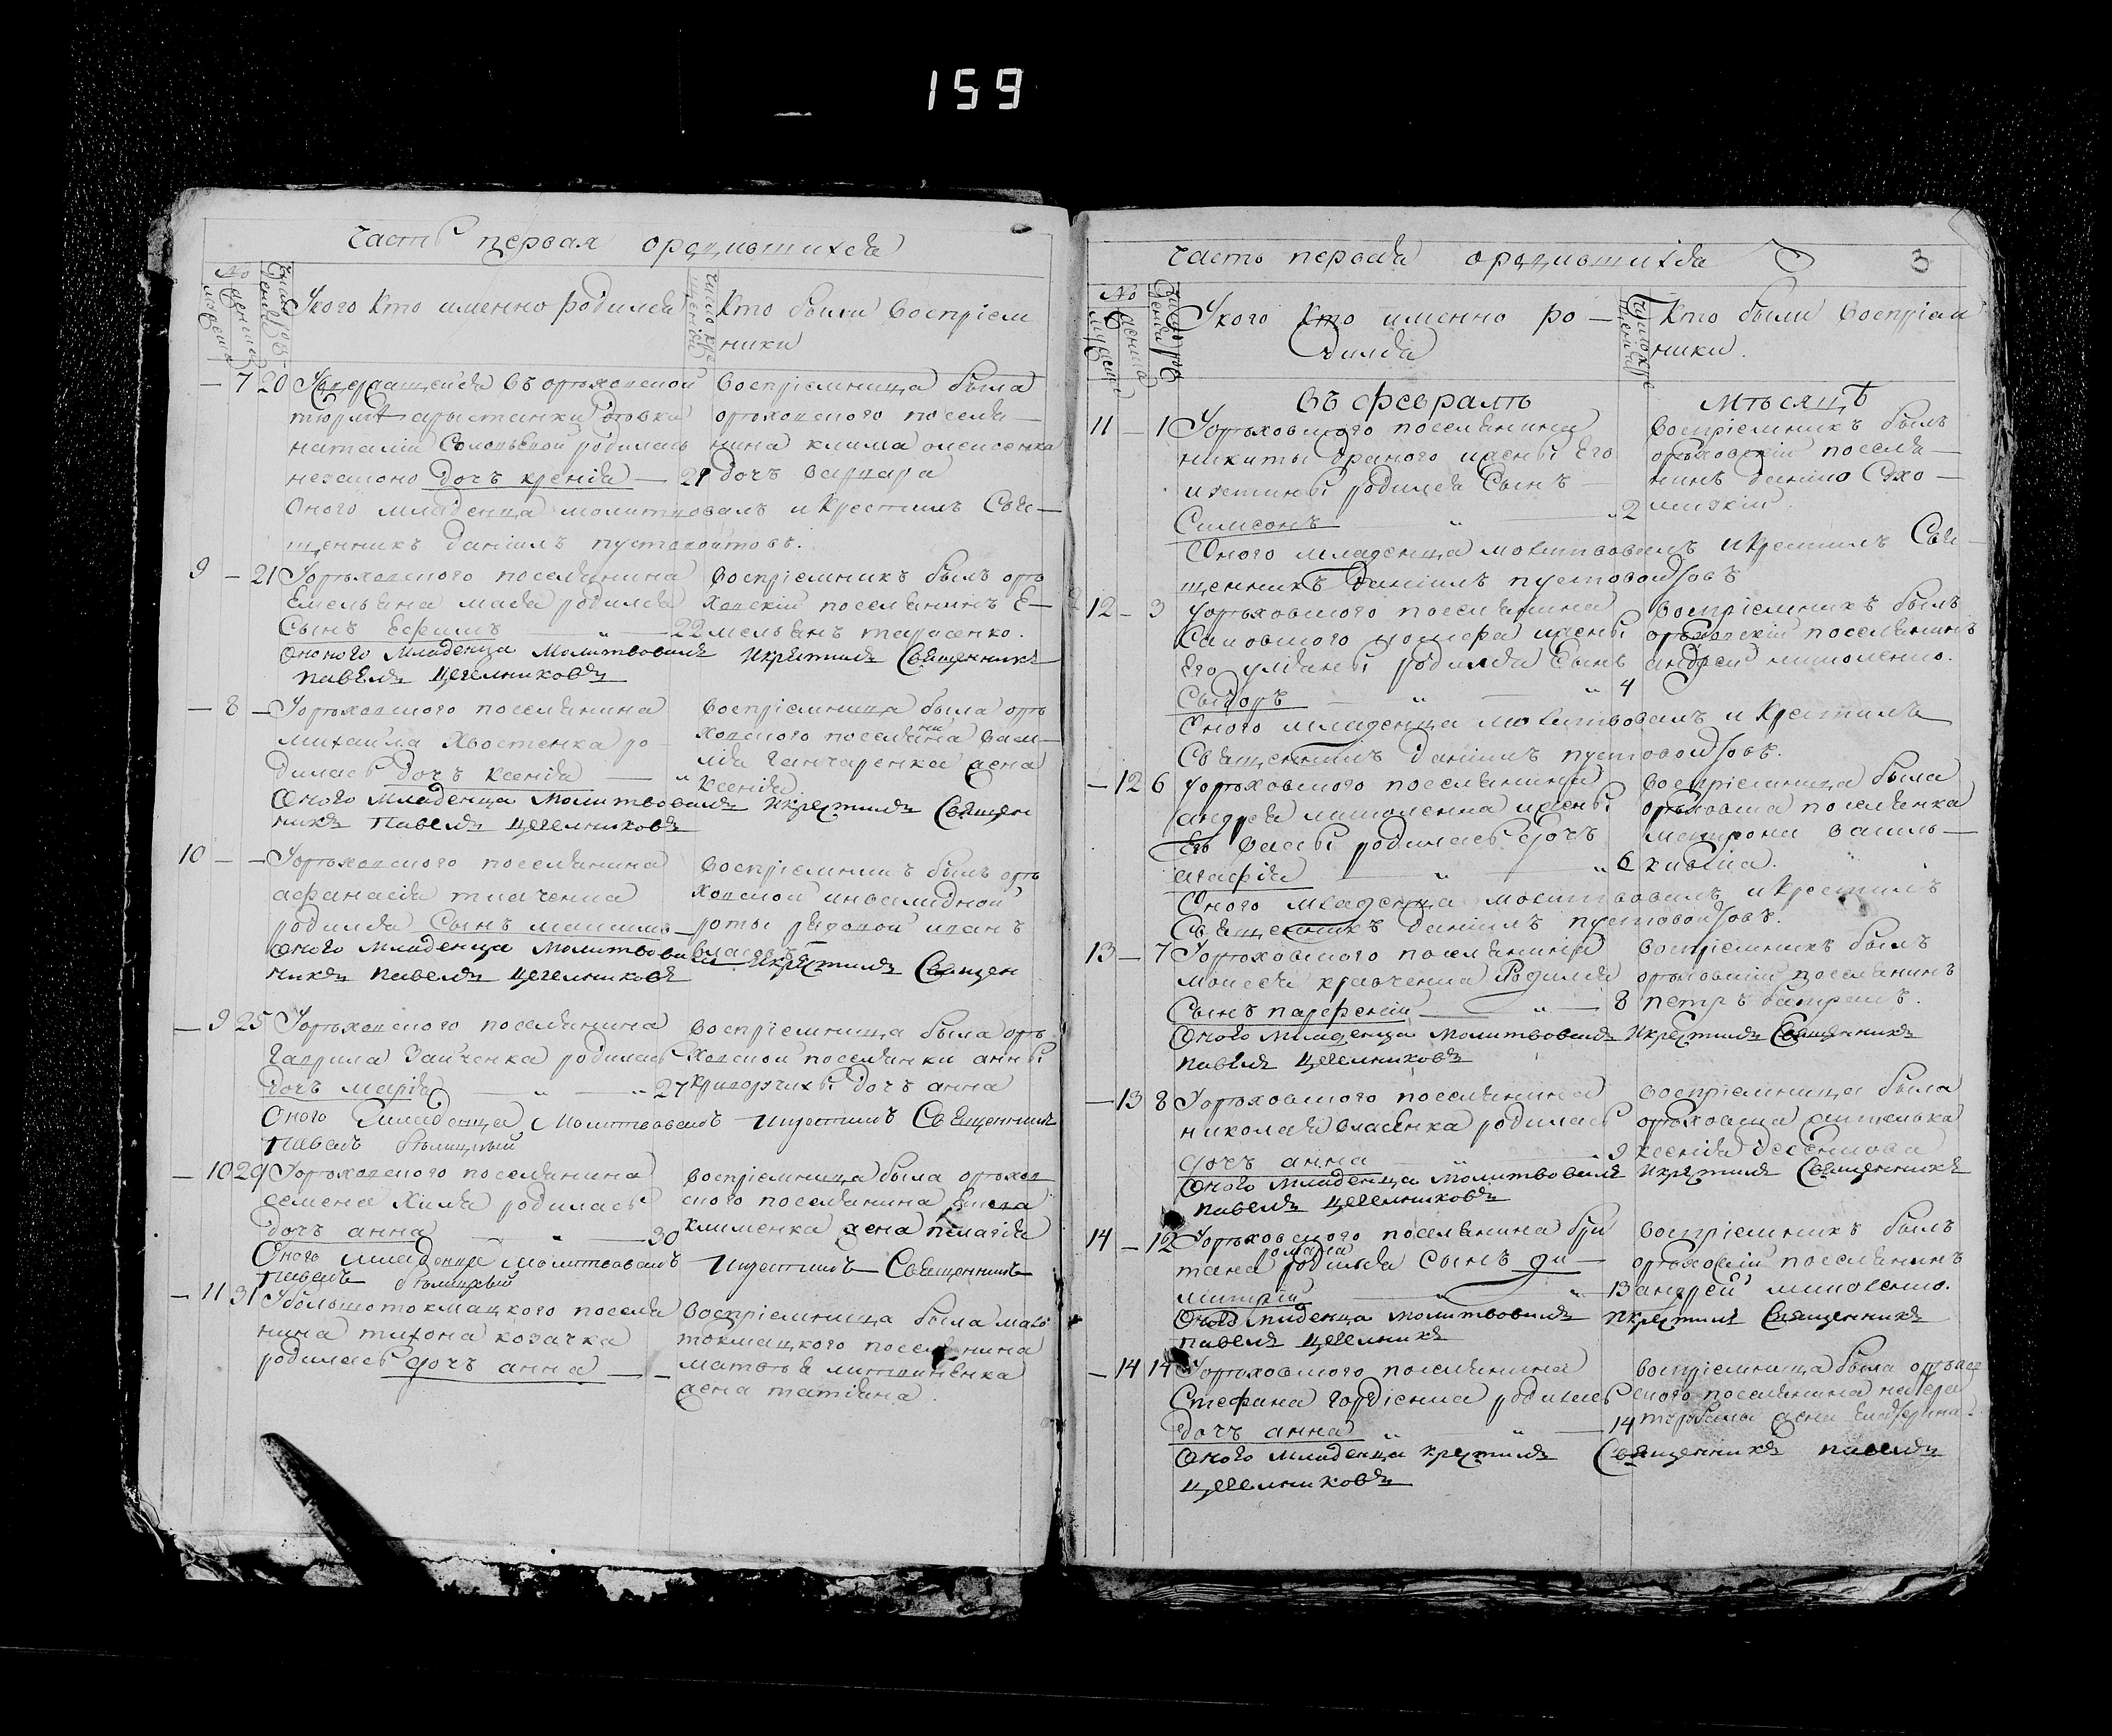 159
часть первая о родившихся
№ мужеска
женска
Число рождения
У кого кто именно родился
Число крещения
Кто были восприем
ники
— 7 20 Содержащейся въ ореховской
тюрме арыстанки
наталiи родилась
незаконо дочь ксенiя — 21
восприемница была
ореховского поселя—
нина клима моисеенка
дочь варвара
Оного младенца молитвовалъ и крестилъ Свя—
щенникъ данiилъ пустовойтовъ.
9 — 21 У ореховского поселянина
Емельяна родился
Сынъ Ефимъ — „ — 22
восприемникъ былъ оре
ховскiй поселянинъ Е—
мельянъ тарасенко.
Оного младенца молитвовалъ и крестилъ Священникъ
павелъ цегельниковъ
— 8 — У ореховского поселянина
михайла Хвостенка ро—
дилась дочь ксенiя — „
восприемница была оре
ховского поселянина васи—
лiя ганчаренка жена
ксенiя.
Оного младенца молитвовалъ и крестилъ Священ
никъ павелъ цегельниковъ
10 — — У ореховского поселянина
афанасiя ткаченка
родился Сынъ максимъ —
восприемникъ былъ оре
ховской инвалидной
роты рядовой иванъ
власовъ
Оного младенца молитвовалъ и крестилъ Священ
никъ павелъ цегельниковъ
— 9 25 У ореховского поселянина
гаврила Зайченка родилась
дочь марiя — „ — „ 27
восприемница была оре
ховской поселянки анны
дочь анна
Оного младенца молитвовалъ и крестилъ Священникъ
павелъ
— 10 29 У ореховского поселянина
семена родилась
дочь анна — „ — 30
восприемница была орехов
ского поселянина
клименка жена пелагiя
Оного младенца молитвовалъ и крестилъ Священникъ
павелъ
— 11 31 У большотокмацкого поселя
нина тихона козачка
родилась дочь анна — —
восприемница была мало
токмацкого поселянина
матвея литвиненка
жена татiяна.
часть первая о родившихся 3
№ мужеска
женска
Число рождения
У кого кто именно ро—
дился
Число крещения
Кто были восприем
ники.
въ феврале месяце
11 — 1 У ореховского поселянина
никиты драного и жены Его
иустины родился Сынъ —
Симеонъ — „ — „ 2
восприемникъ былъ
ореховскiй поселя—
нинъ данило Сухо—
млинскiй.
Оного младенца молитвовалъ и крестилъ Свя—
щенникъ данiилъ пустовойтовъ
12 — 3 У ореховского поселянина
и жены
Его улiяны родился Сынъ
Сыдоръ — „ — „ 4
восприемникъ былъ
ореховскiй поселянинъ
андрей миколенко.
Оного младенца молитвовалъ и крестилъ
Священникъ данiилъ пустовойтовъ.
— 12 6 У ореховского поселянина
андрея миколенка и жены
Его родилась дочь
агафiя — „ — „ 6
восприемница была
ореховска поселянка
матрона василь—
кивска.
Оного младенца молитвовалъ и крестилъ
Священникъ данiилъ пустовойтовъ.
13 — 7 У ореховского поселянина
моисея кравченка родился
Сынъ парфенiй — „ — 8
восприемникъ былъ
ореховскiй поселянинъ
петръ
Оного младенца молитвовалъ и крестилъ Священникъ
павелъ цегельниковъ
— 13 8 У ореховского поселянина
николая власенка родилась
дочь анна — „ — 9
восприемница была
ореховска жителька
ксенiя
Оного младенца молитвовалъ и крестилъ Священникъ
павелъ цегельниковъ
14 — 12 У ореховского поселянина
романа
родился Сынъ ди—
митрiй — „ — 13
восприемникъ былъ
ореховскiй поселянинъ
андрей миколенко.
Оного младенца молитвовалъ и крестилъ Священникъ
павелъ цегельникъ
— 14 14 У ореховского поселянина
Стефана гордiенка родилась
дочь анна „ — „ — 14
восприемница была орехов
ского поселянина
жена
Оного младенца крестилъ Священникъ павелъ
цегельниковъ